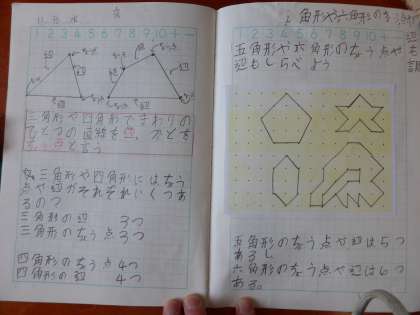 1 2 3 4 5 6 7 8 9 10
ちょう点
辺
三角形や四角形でまわりの
ひとつの直線を辺、かどを
ちょう点と言う
三角形や四角形にはちょう
点や辺がそれぞれいくつあ
るのつ
三角形の辺 3つ
三角形のちょう点 3つ
四角形のちょう点 4つ
四角形の辺 4つ
五角形や六角形のちょう点や
辺もしらべよう
五角形のちょう点や辺は5つ
あるし
六角形のちょう点や辺は6つ
ある。